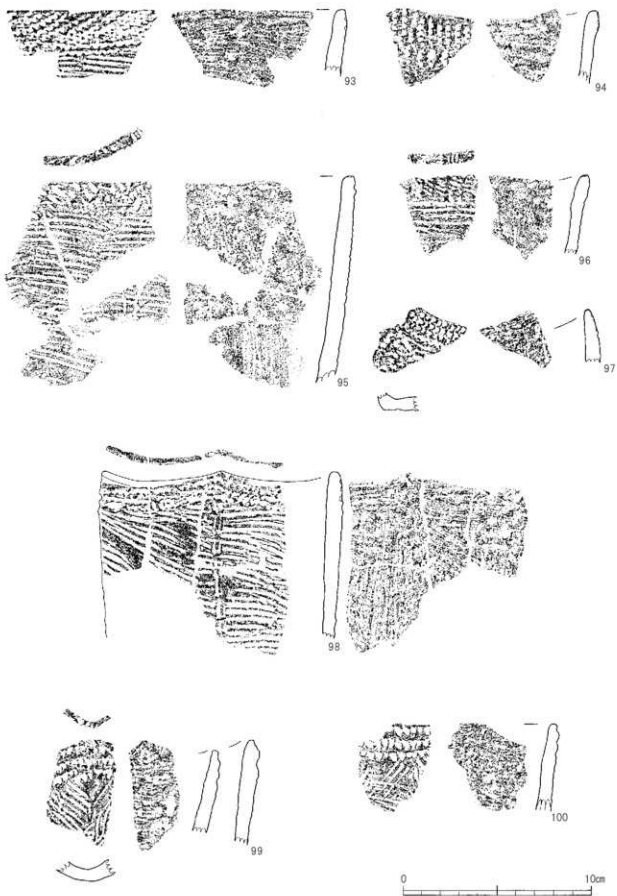 93
94
95
96
97
98
99
100
0 10cm